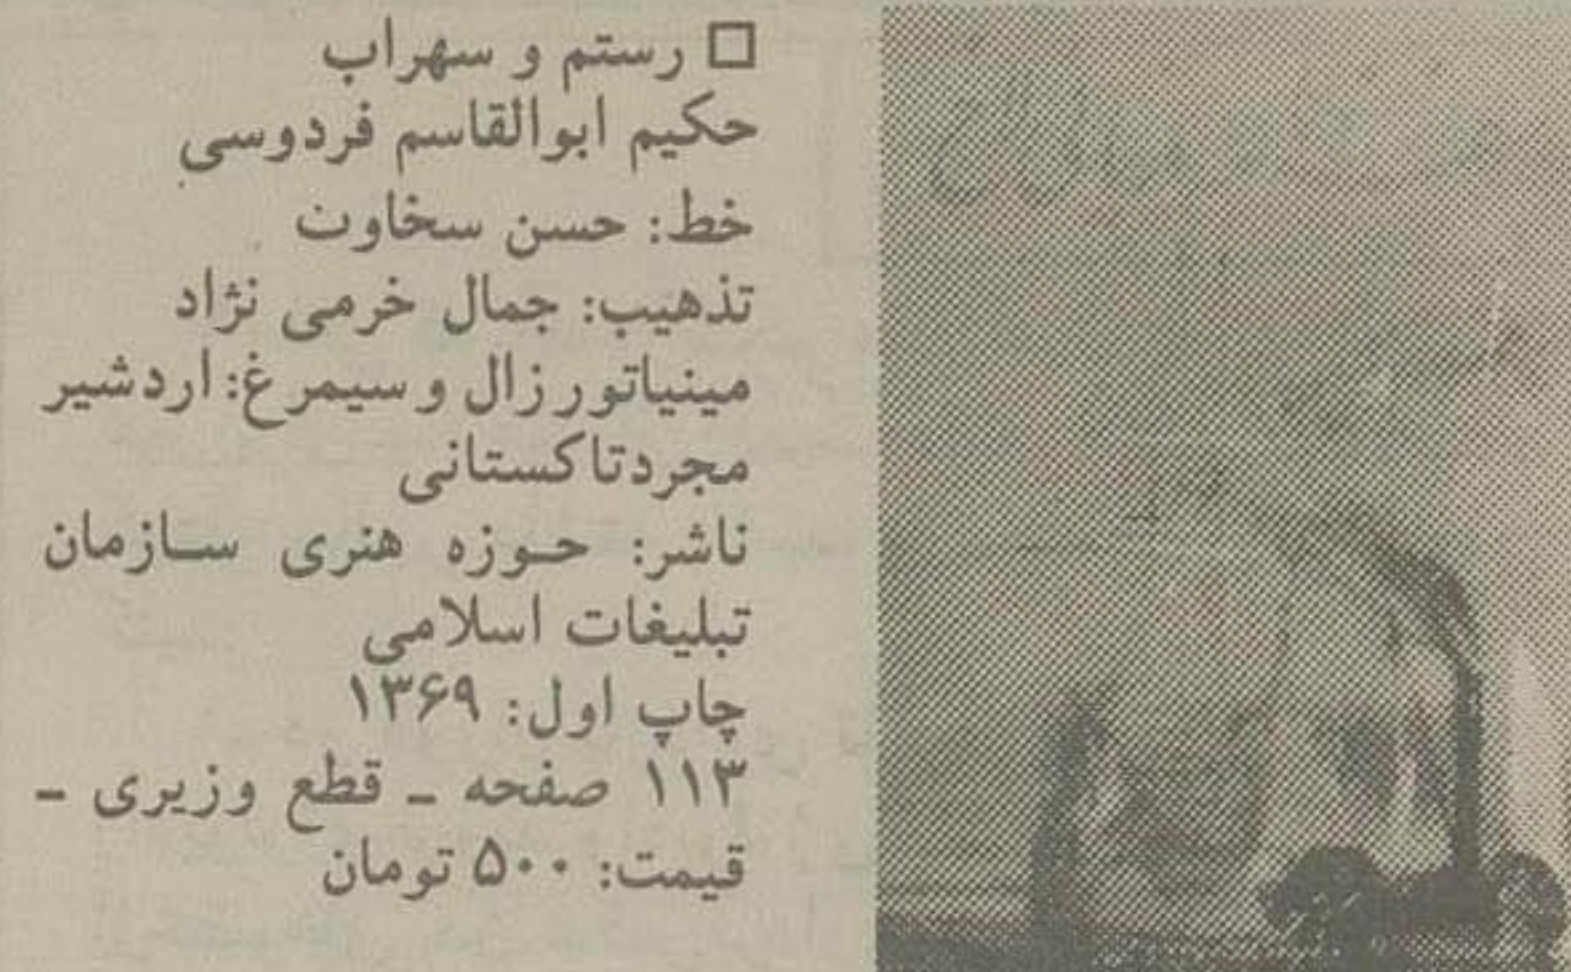 □ رستم و سهراب
حکیم ابوالقاسم فردوسی
خط: حسن سخاوت
تذهیب: جمال خرمی نژاد
مینیاتور زال و سیمرغ: اردشیر
مجردتاکستانی
ناشر: حـوزه هنری سـازمان
تبلیغات اسلامی
چاپ اول: ۱۳۶۹
۱۱۳ صفحه ـ قطع وزیری ـ
قیمت: ۵۰۰ تومان